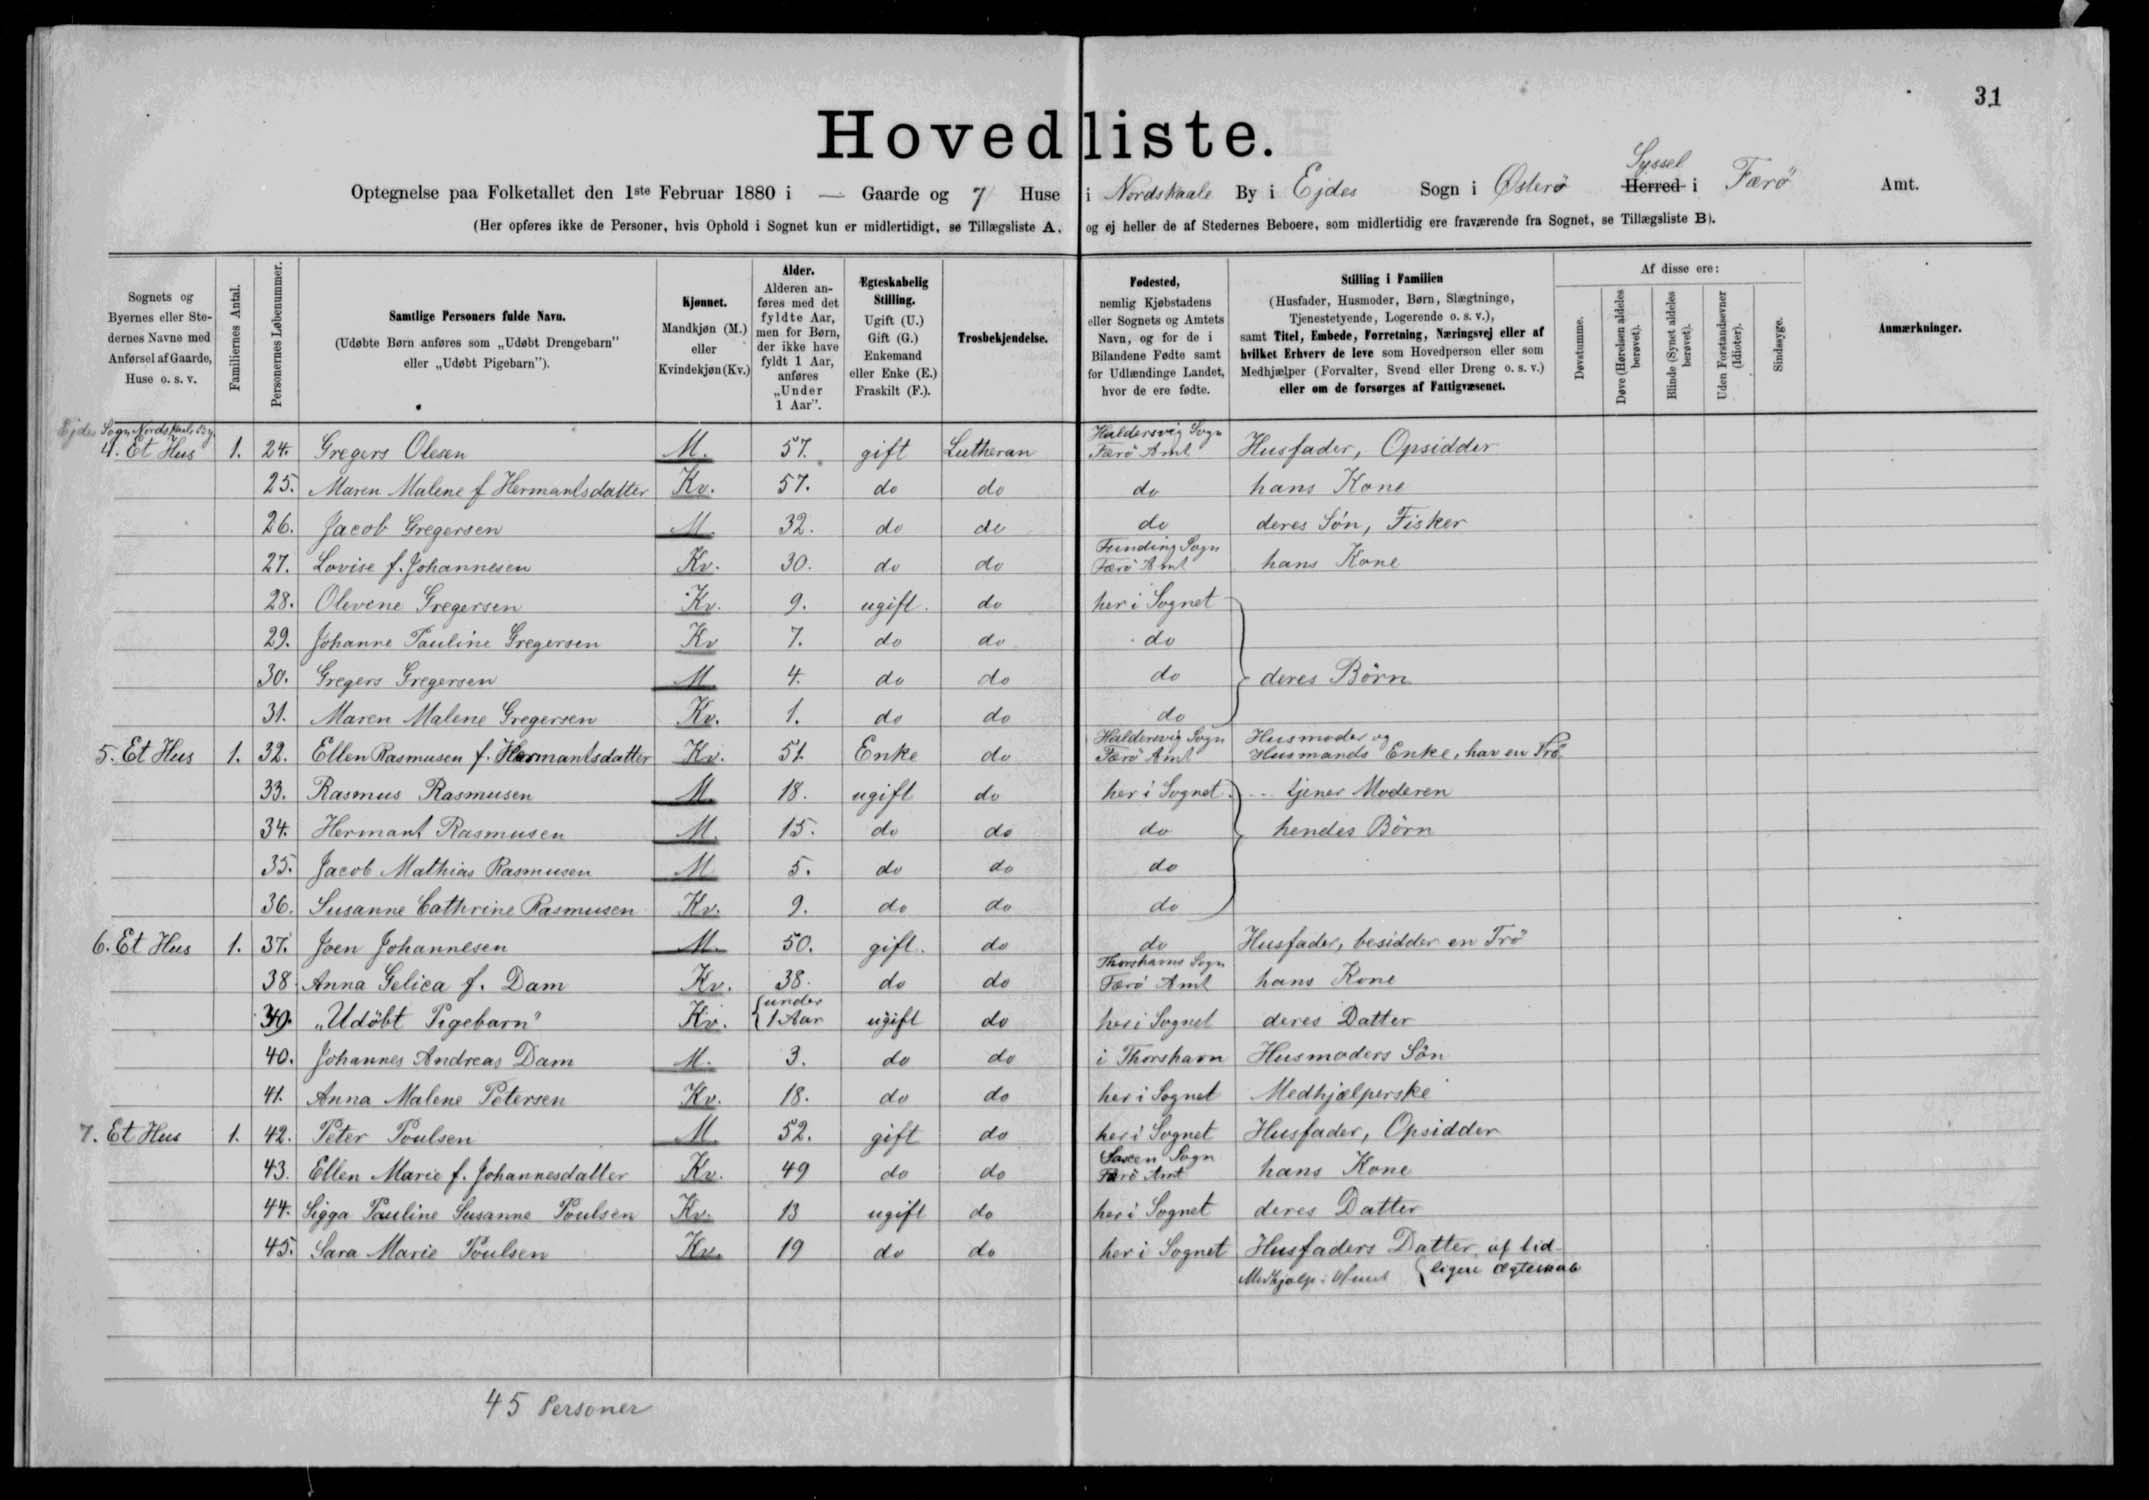 31
Hovedliste.
Optegnelse paa Folketallet den 1ste Februar 1880 i — Gaarde og 7 Huse i Nordskaale By i Ejdes Sogn i Østerø Herred Syssel i Færö Amt.
(Her opføres ikke de Personer, hvis Ophold i Sognet kun er midlertidigt, se Tillægsliste A, og ej heller de af Stedernes Beboere, som midlertidig ere fraværende fra Sognet, se Tillægsliste B).
Sognets og Byernes eller Stedernes Navne med Anførsel af Gaarde, Huse o. s. v.
Familiernes Antal.
Personernes Løbenummer.
Samtlige Personers fulde Navn.
(Udøbte Børn anføres som „Udøbt Drengebarn” eller „Udøbt Pigebarn”).
Kjønnet.
Mandkjøn (M.) eller Kvindekjøn (Kv.)
Alder.
Alderen anføres med det fyldte Aar, men for Børn, der ikke have fyldt 1 Aar, anføres „Under 1 Aar”.
Ægteskabelig Stilling.
Ugift (U.) Gift (G.) Enkemand eller Enke (E.) Fraskilt (F.).
Trosbekjendelse.
Fødested,
nemlig Kjøbstadens eller Sognets og Amtets Navn, og for de i Bilandene Fødte samt for Udlændinge Landet, hvor de ere fødte.
Stilling i Familien
(Husfader, Husmoder, Børn, Slægtninge, Tjenestetyende, Logerende o. s. v.),
samt Titel, Embede, Forretning, Næringsvej eller af hvilket Erhverv de leve som Hovedperson eller som Medhjælper (Forvalter, Svend eller Dreng o. s. v.) eller om de forsørges af Fattigvæsenet.
Af disse ere:
Døvstumme.
Døve (Hørelsen aldeles berøvet).
Blinde (Synet aldeles berøvet).
Uden Forstandsevner (Idioter).
Sindssyge.
Anmærkninger.
Ejdes Sogn Nordskaale By.
4. Et Hus 1. 24. Gregers Olesen M. 57. gift Lutheran Haldersvig Sogn Færö Amt Husfader, Opsidder
25. Maren Malene f Hermantsdatter Kv. 57. do do do hans Kone
26. Jacob Gregersen M. 32. do do do deres Søn, Fisker
27. Lovise f. Johannesen Kv. 30. do do Funding Sogn Færö Amt hans Kone
28. Olevine Gregersen Kv. 9. ugift. do her i Sognet
29. Johanne Pauline Gregersen Kv 7. do do do
30. Gregers Gregersen M 4. do do do deres Börn
31. Maren Malene Gregersen Kv. 1. do do do
5. Et Hus 1. 32. Ellen Rasmusen f. Hermantsdatter Kv. 51. Enke do Haldersvig Sogn Færö Amt Husmoder og Husmands Enke, har en Trö
33. Rasmus Rasmusen M. 18. ugift do her i Sognet tjener Moderen
34. Hermant Rasmusen M. 15. do do do hendes Börn
35. Jacob Mathias Rasmusen M 5. do do do
36. Susanne Cathrine Rasmusen Kv. 9. do do do
6. Et Hus 1. 37. Joen Johannesen M. 50. gift. do do Husfader, besidder en Trö
38. Anna Gelica f. Dam Kv. 38. do do Thorshavns Sogn Færö Amt hans Kone
39. „Udöbt Pigebarn” Kv. under 1 Aar ugift do her i Sognet deres Datter
40. Johannes Andreas Dam M. 3. do do i Thorshavn Husmoders Sön
41. Anna Malene Petersen Kv. 18. do do her i Sognet Medhjælperske
7. Et Hus 1. 42. Peter Poulsen M. 52. gift do her i Sognet Husfader, Opsidder
43. Ellen Marie f. Johannesdatter Kv. 49 do do Saxen Sogn Færö Amt hans Kone
44. Sigga Pauline Susanne Poulsen Kv. 13 ugift do her i Sognet deres Datter
45. Sara Marie Poulsen Kv. 19 do do her i Sognet Husfaders Datter af tid-
Medhjælp i Huset ligere Ægteskab
45 Personer